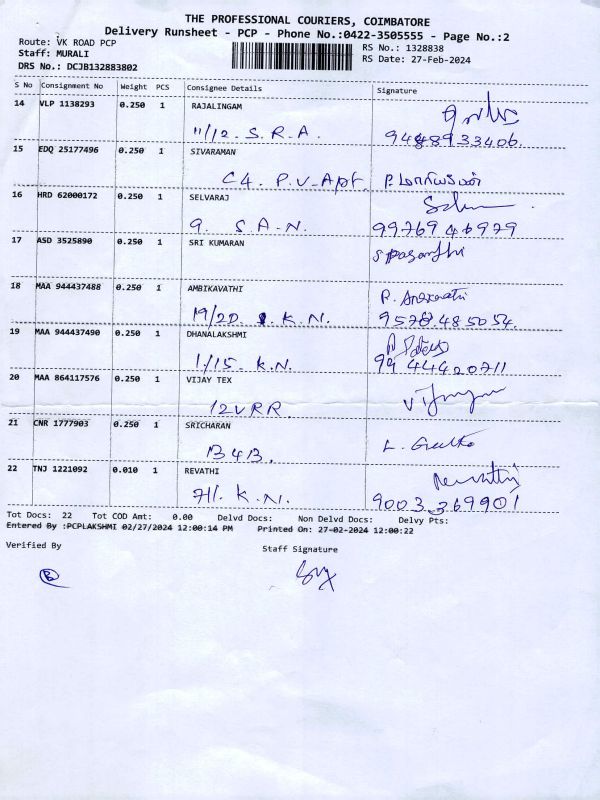 THE PROFESSIONAL COURIERS, COIMBATORE
Delivery Runsheet - PCP - Phone No.:0422-3505555 - Page No.:2
Route: VK ROAD PCP RS No.: 1328838
Staff: MURALI RS Date: 27-Feb-2024
DRS No.: DCJB132883802
S No Consignment No Weight PCS Consignee Details Signature
14 VLP 1138293 0.250 1 RAJALINGAM
11/12 S.R.A. 9448933406.
15 EDQ 25177496 0.250 1 SIVARAMAN
C4. P.V-Apt.
16 HRD 62000172 0.250 1 SELVARAJ
9. S.A.N. 9976946979
17 ASD 3525890 0.250 1 SRI KUMARAN
18 MAA 944437488 0.250 1 AMBIKAVATHI
19/20 K.N. 9578.485054.
19 MAA 944437490 0.250 1 DHANALAKSHMI
1/15. K.N. 9444420711
20 MAA 864117576 0.250 1 VIJAY TEX
12VRR.
21 CNR 1777903 0.250 1 SRICHARAN
B4B. L. Geetha
22 TNJ 1221092 0.010 1 REVATHI Revathi
71. K.N. 9003369901
Tot Docs: 22 Tot COD Amt: 0.00 Delvd Docs: Non Delvd Docs: Delvy Pts:
Entered By :PCPLAKSHMI 02/27/2024 12:00:14 PM Printed On: 27-02-2024 12:00:22
Verified By Staff Signature